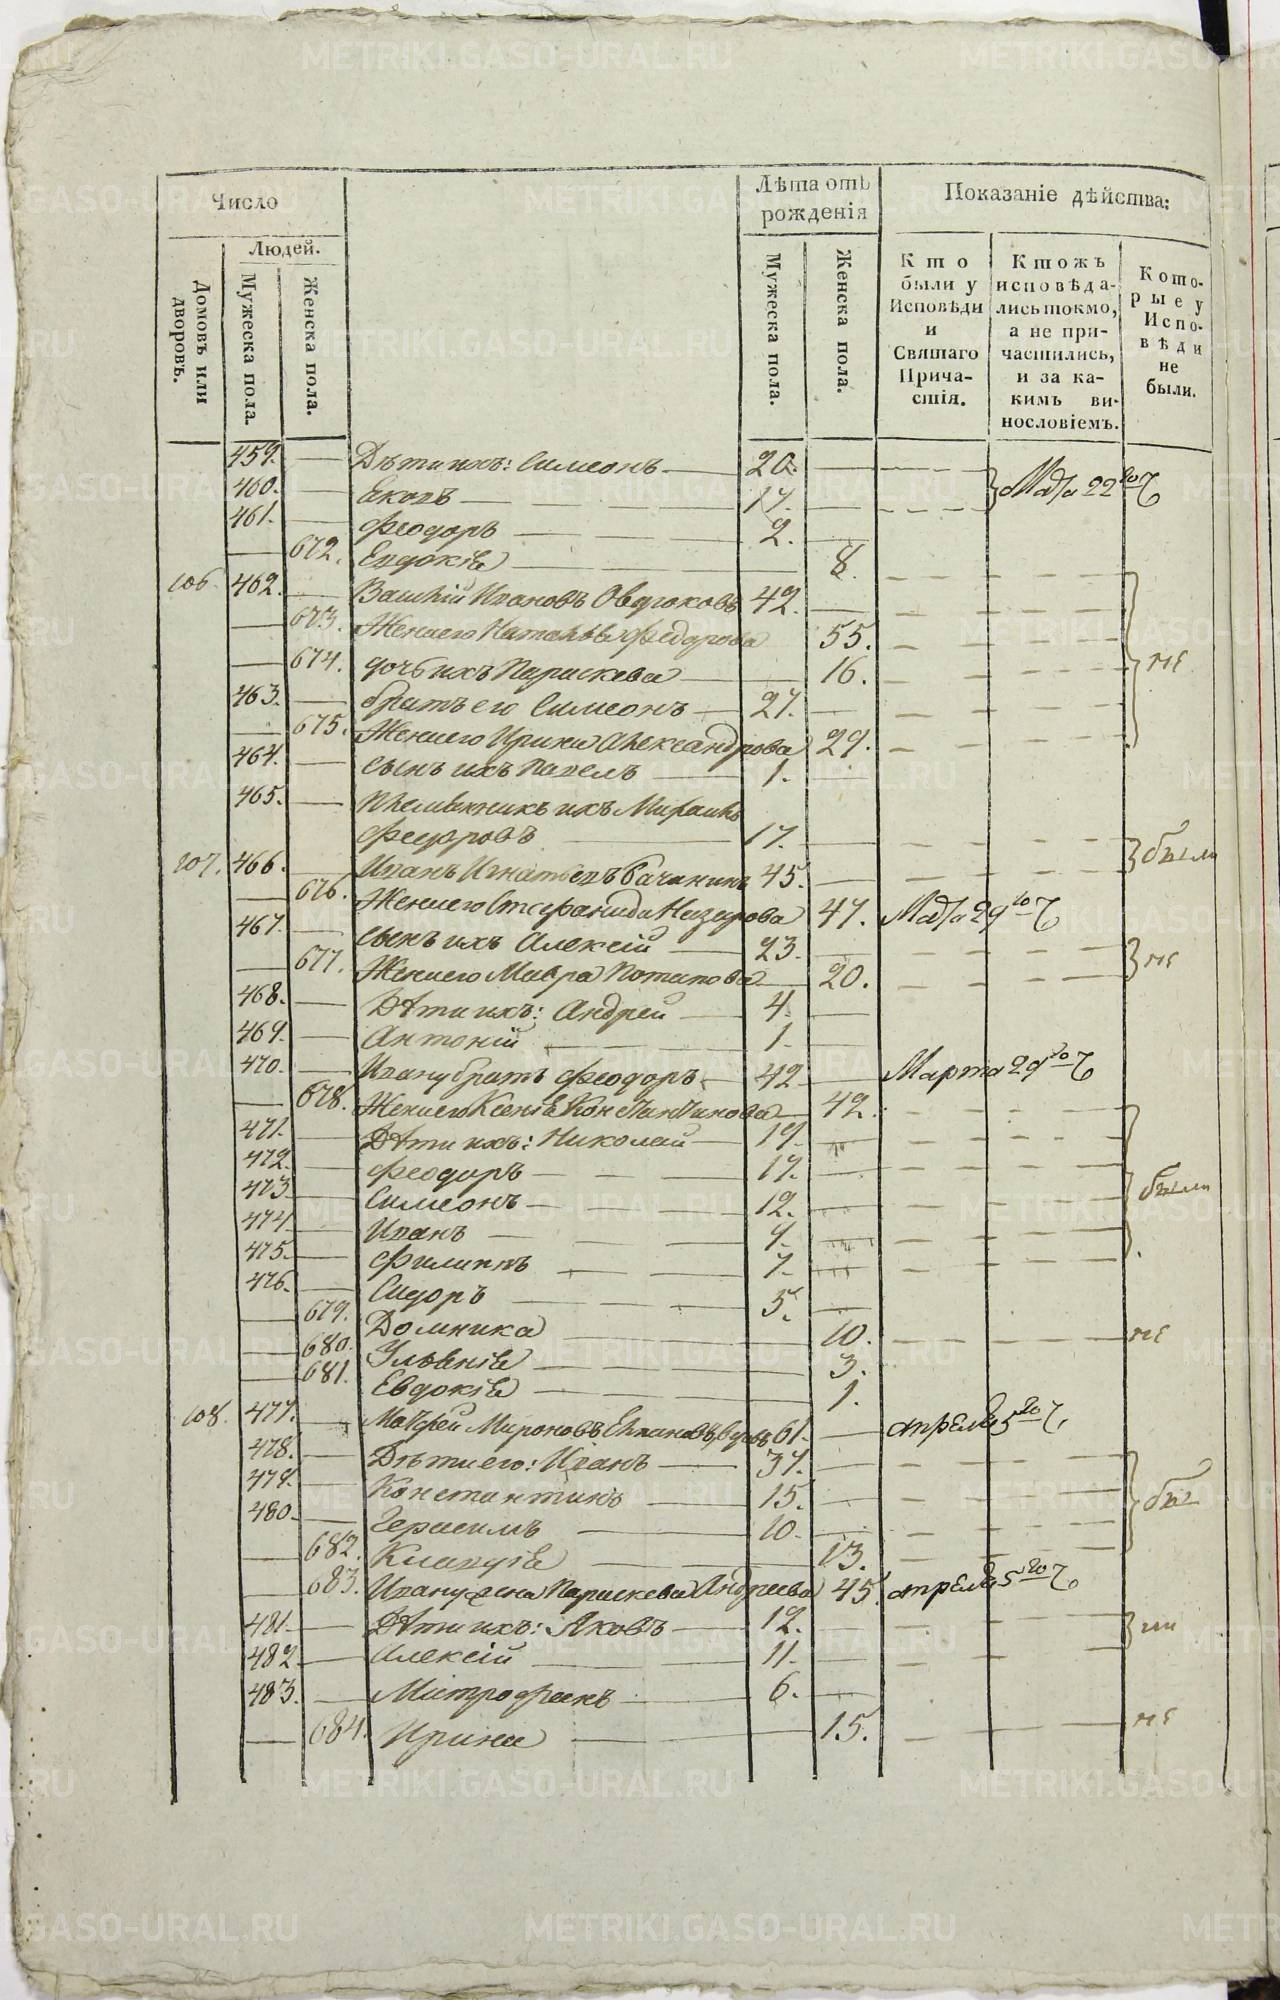 Число
Людей.
Домовъ или дворовъ.
Мужеска пола.
Женска пола.
Лѣта отъ рожденія
Мужеска пола.
Женска пола.
Показаніе дѣйства:
Кто были у Исповѣди и Святаго Причастія.
Ктожъ исповѣдались токмо, а не причастились, и за какимъ винословіемъ.
Которые у Исповѣди не были.
459. Дѣти ихъ: Симеонъ 20.
460. 17. 22
461. Феодоръ 2.
672. Евдокія 8.
106. 462. Ивановъ 42.
673. Жена его Наталья Федорова 55.
674. дочь ихъ Параскева 16. не
463. братъ его Симеонъ 27.
675. Жена его Ирина Александрова 29.
464. сынъ ихъ Павелъ 1.
465. племянникъ ихъ Михаилъ
Федоровъ 17. были
107. 466. Иванъ Игнатьевъ 45.
676. Жена его Стефанида Назарова 47. 29
467. сынъ ихъ Алексій 23.
677. Жена его Мавра Потапова 20. не
468. Дѣти ихъ: Андрей 4.
469. Антоній 1.
470. Ивану братъ Феодоръ 42 Марта 29
678. Жена его Ксенія Константинова 42.
471. Дѣти ихъ: Николай 19.
472. Феодоръ 17.
473 Симеонъ 12. были
474 Иванъ 9.
475. Филиппъ 7.
476. Сидоръ 5.
679. Домника 10. не
680. Ульянія 3.
681. Евдокія 1.
108. 477. Матфей Мироновъ вдовъ 61. апреля 5
478. Дѣти его: Иванъ 37.
479. Константинъ 15.
480. Герасимъ 10.
682. Клавдія 13.
683. Ивану жена Параскева Андреева 45. апреля 5
481. Дѣти ихъ: Яковъ 12.
482. Алексій 11.
483. Митрофанъ 6.
684. Ирина 15. не
METRIKI.GASO-URAL.RU